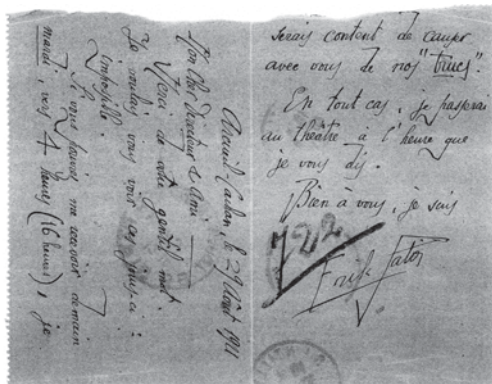 Arcueil-Cachan, le 29 Août 1911
Mon Cher Directeur & Ami
Merci de votre gentil mot.
Je voulais vous voir ces jours-ci :
impossible.
Si vous pouvez me recevoir demain
mardi, vers 4 heures (16 heures), je
serais content de causer
avec vous de nos "trucs".
En tout cas, je passerai
au théâtre à l'heure que
je vous dis.
Bien à vous, je suis
Erik Satie